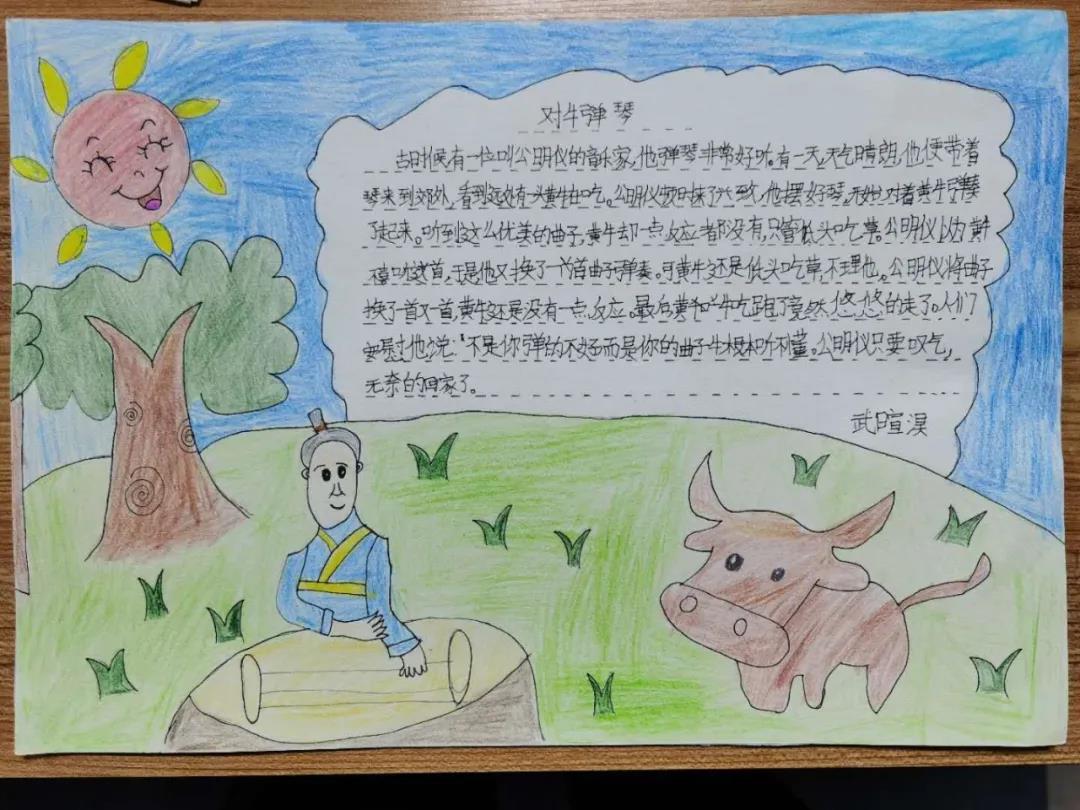 对牛弹琴
古时候有一位叫公明仪的音乐家,他弹琴非常好听。有一天,天气晴朗,他便带着
琴来到郊外,看到远处有头黄牛在吃。公明仪顿时来了兴致,他摆好琴,对着黄牛弹奏
了起来。听到这么优美的曲子,黄牛却一点反应都没有,只管低头吃草。公明仪以为黄牛
不喜欢这首,于是他又换了一首曲子弹奏。可黄牛还是低头吃草,不理他。公明仪将曲子
换了一首又一首,黄牛还是没有一点反应。最后黄牛吃饱了竟然悠悠的走了。人们
安慰他说:"不是你弹的不好而是你的曲子牛根本听不懂。公明仪只要叹气,
无奈的回家了。
武暄淏